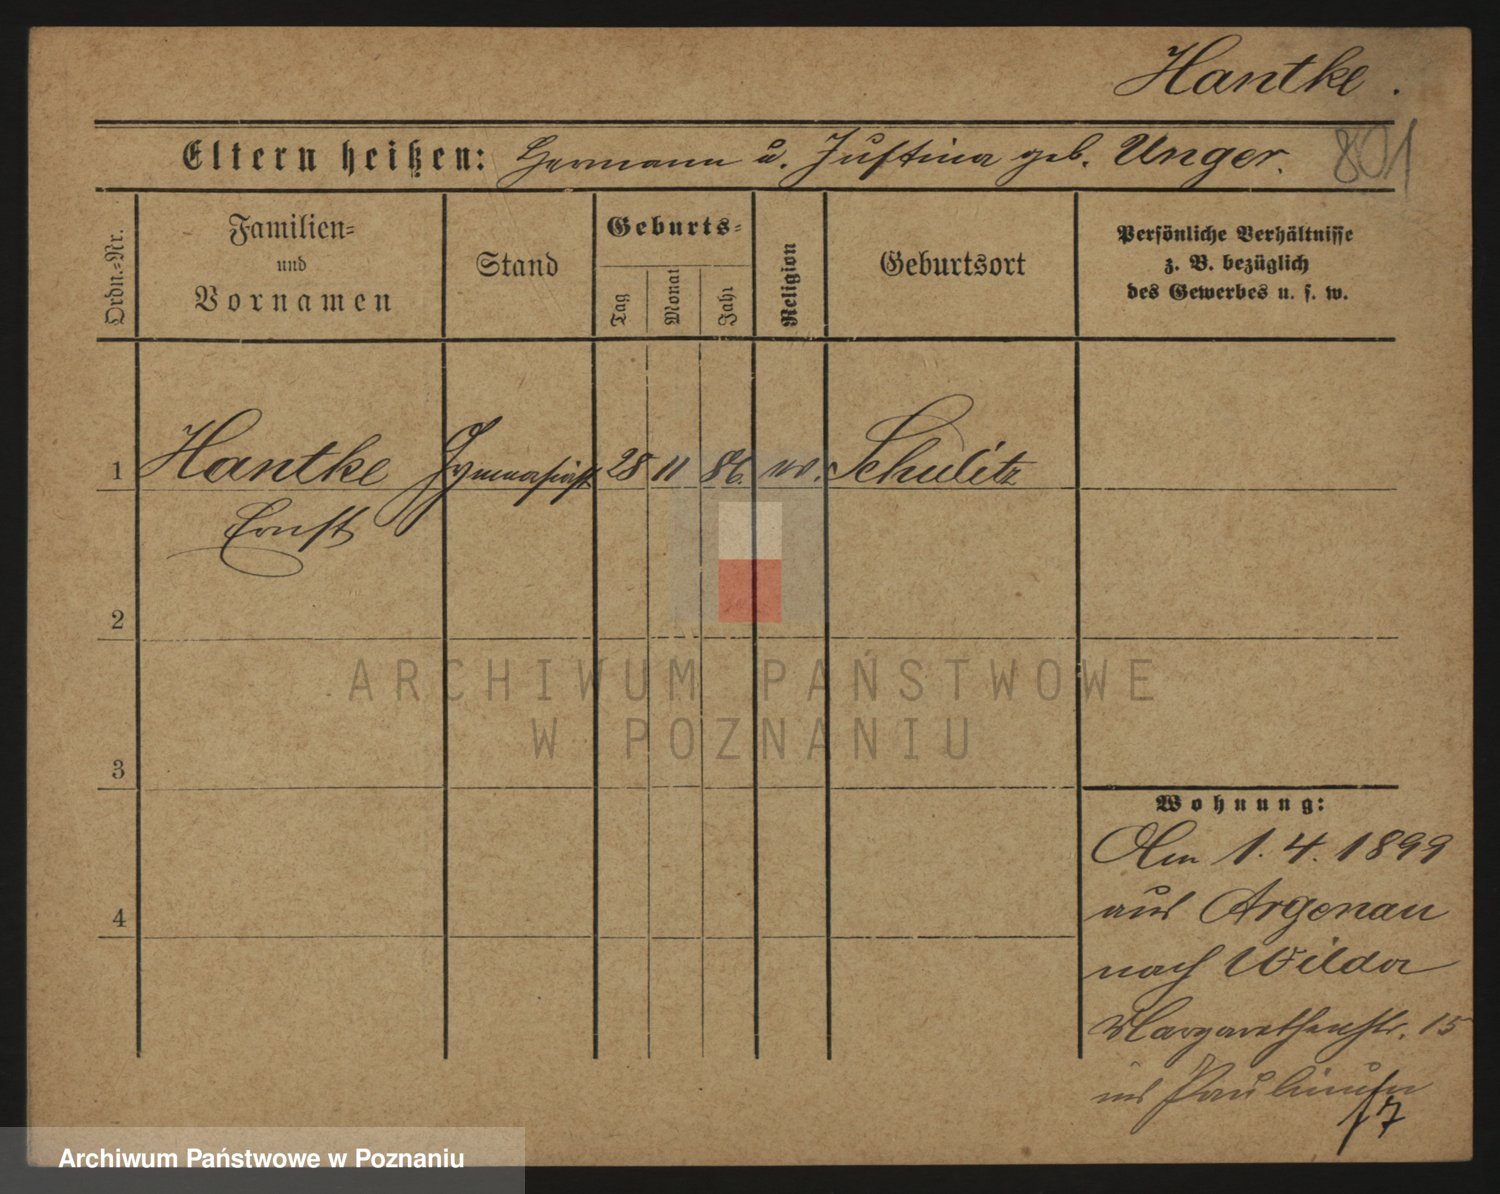 Hantke.
Eltern heißen: Hermann u. Justina geb. Unger.
801
Ordn.-Nr.
Familien-
und
Vornamen
Stand
Geburts-
Tag
Monat
Jahr
Religion
Geburtsort
Persönliche Verhältnisse
z. B. bezüglich
des Gewerbes u. s. w.
1 Hantke Gymnasiast 28 11 86. ev. Schulitz
Ernst
2
ARCHIWUM PAŃSTWOWE
W POZNANIU
3
Wohnung:
Am 1. 4. 1899
4
aus Argenau
nach Wilda
Margarethenstr. 15
ins Paulinum
17
Archiwum Państwowe w Poznaniu